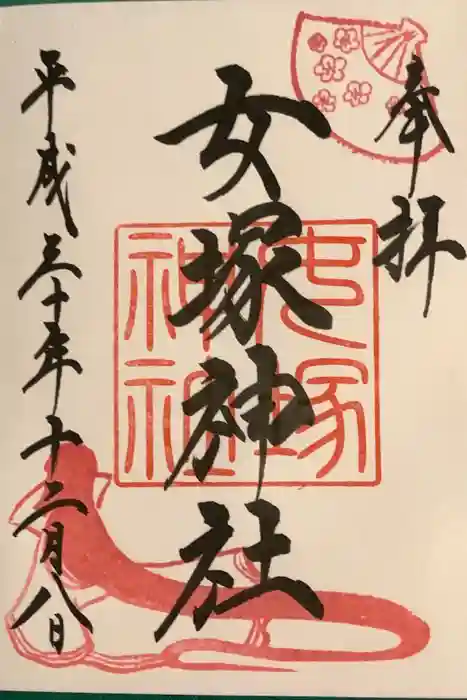 奉拝
女塚神社
女塚
神社
平成三十年十二月八日